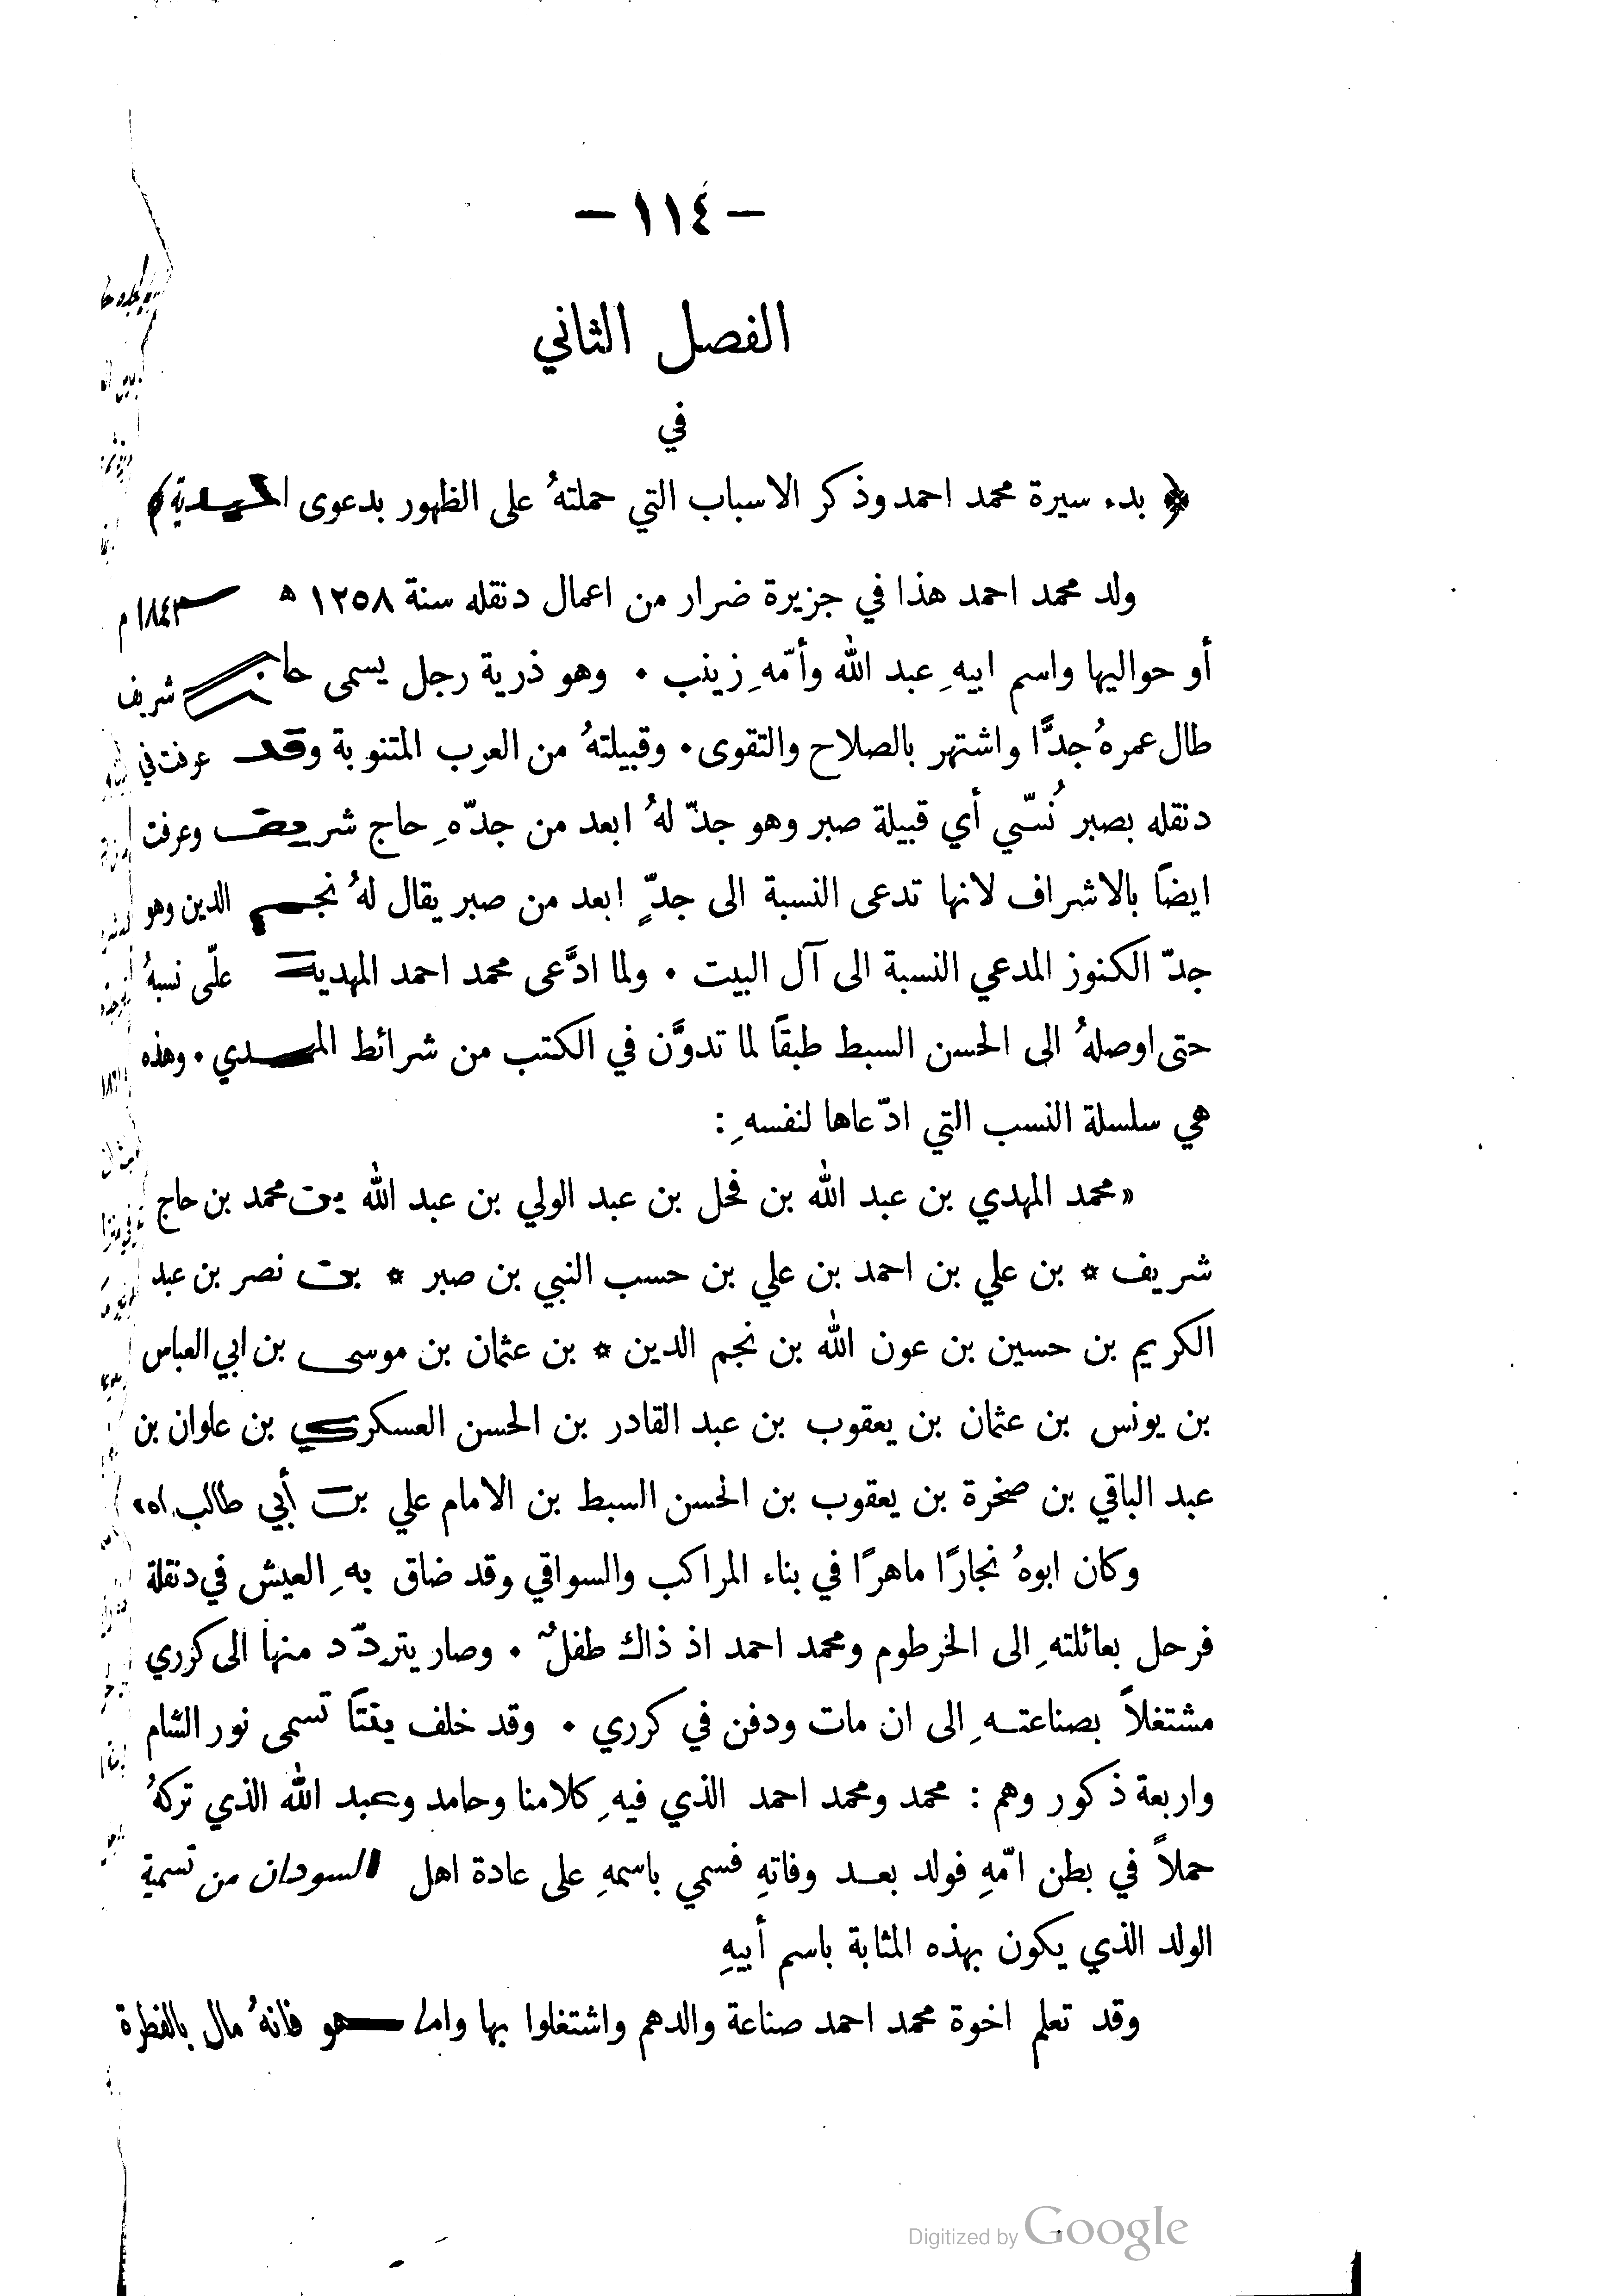 — ١١٤ —
الفصل الثاني
في
﴿ بدء سيرة محمد احمد وذكر الاسباب التي حملتهُ على الظهور بدعوى المهدية ﴾
ولد محمد احمد هذا في جزيرة ضرار من اعمال دنقله سنة ١٢٥٨ ﻫ ١٨٤٣م
أو حواليها واسم ابيهِ عبد الله وأمّهِ زينب ٠ وهو ذرية رجل يسمى حاج شريف
طال عمرهُ جدًّا واشتهر بالصلاح والتقوى ٠ وقبيلتهُ من العرب المتنوبة وقد عرفت في
دنقله بصبر نُسّي أي قبيلة صبر وهو جدّ لهُ ابعد من جدّهِ حاج شريف وعرفت
ايضًا بالاشراف لانها تدعى النسبة الى جدّ ٍ ابعد من صبر يقال لهُ نجم الدين وهو
جدّ الكنوز المدعي النسبة الى آل البيت ٠ ولما ادَّعى محمد احمد المهدية علّى نسبهُ
حتى اوصلهُ الى الحسن السبط طبقًا لما تدوَّن في الكتب من شرائط المهدي ٠ وهذه
هي سلسلة النسب التي ادّعاها لنفسهِ :
« محمد المهدي بن عبد الله بن فحل بن عبد الولي بن عبد الله بن محمد بن حاج
شريف * بن علي بن احمد بن علي بن حسب النبي بن صبر * بن نصر بن عبد
الكريم بن حسين بن عون الله بن نجم الدين * بن عثمان بن موسى بن ابي العباس
بن يونس بن عثمان بن يعقوب بن عبد القادر بن الحسن العسكري بن علوان بن
عبد الباقي بن صخرة بن يعقوب بن الحسن السبط بن الامام علي بن أبي طالب اه »
وكان ابوهُ نجارًا ماهرًا في بناء المراكب والسواقي وقد ضاق بهِ العيش في دنقلة
فرحل بعائلتهِ الى الخرطوم ومحمد احمد اذ ذاك طفلٌ ٠ وصار يتردّد منها الى كرري
مشتغلاً بصناعتهِ الى ان مات ودفن في كرري ٠ وقد خلف بنتًا تسمى نور الشام
واربعة ذكور وهم : محمد ومحمد احمد الذي فيهِ كلامنا وحامد وعبد الله الذي تركهُ
حملاً في بطن امّهِ فولد بعد وفاتهِ فسمي باسمهِ على عادة اهل السودان من تسمية
الولد الذي يكون بهذه المثابة باسم أبيهِ
وقد تعلم اخوة محمد احمد صناعة والدهم واشتغلوا بها واما هو فانهُ مال بالفطرة
Digitized by Google